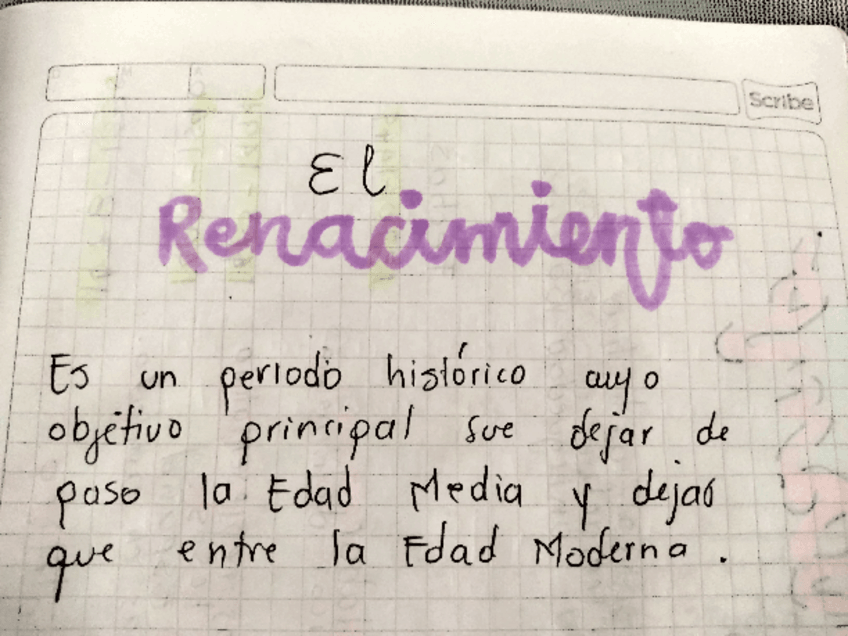 Scribe
El
Renacimiento
Es un periodo histórico cuyo
objetivo principal fue dejar de
paso la Edad Media y dejar
que entre la Edad Moderna.